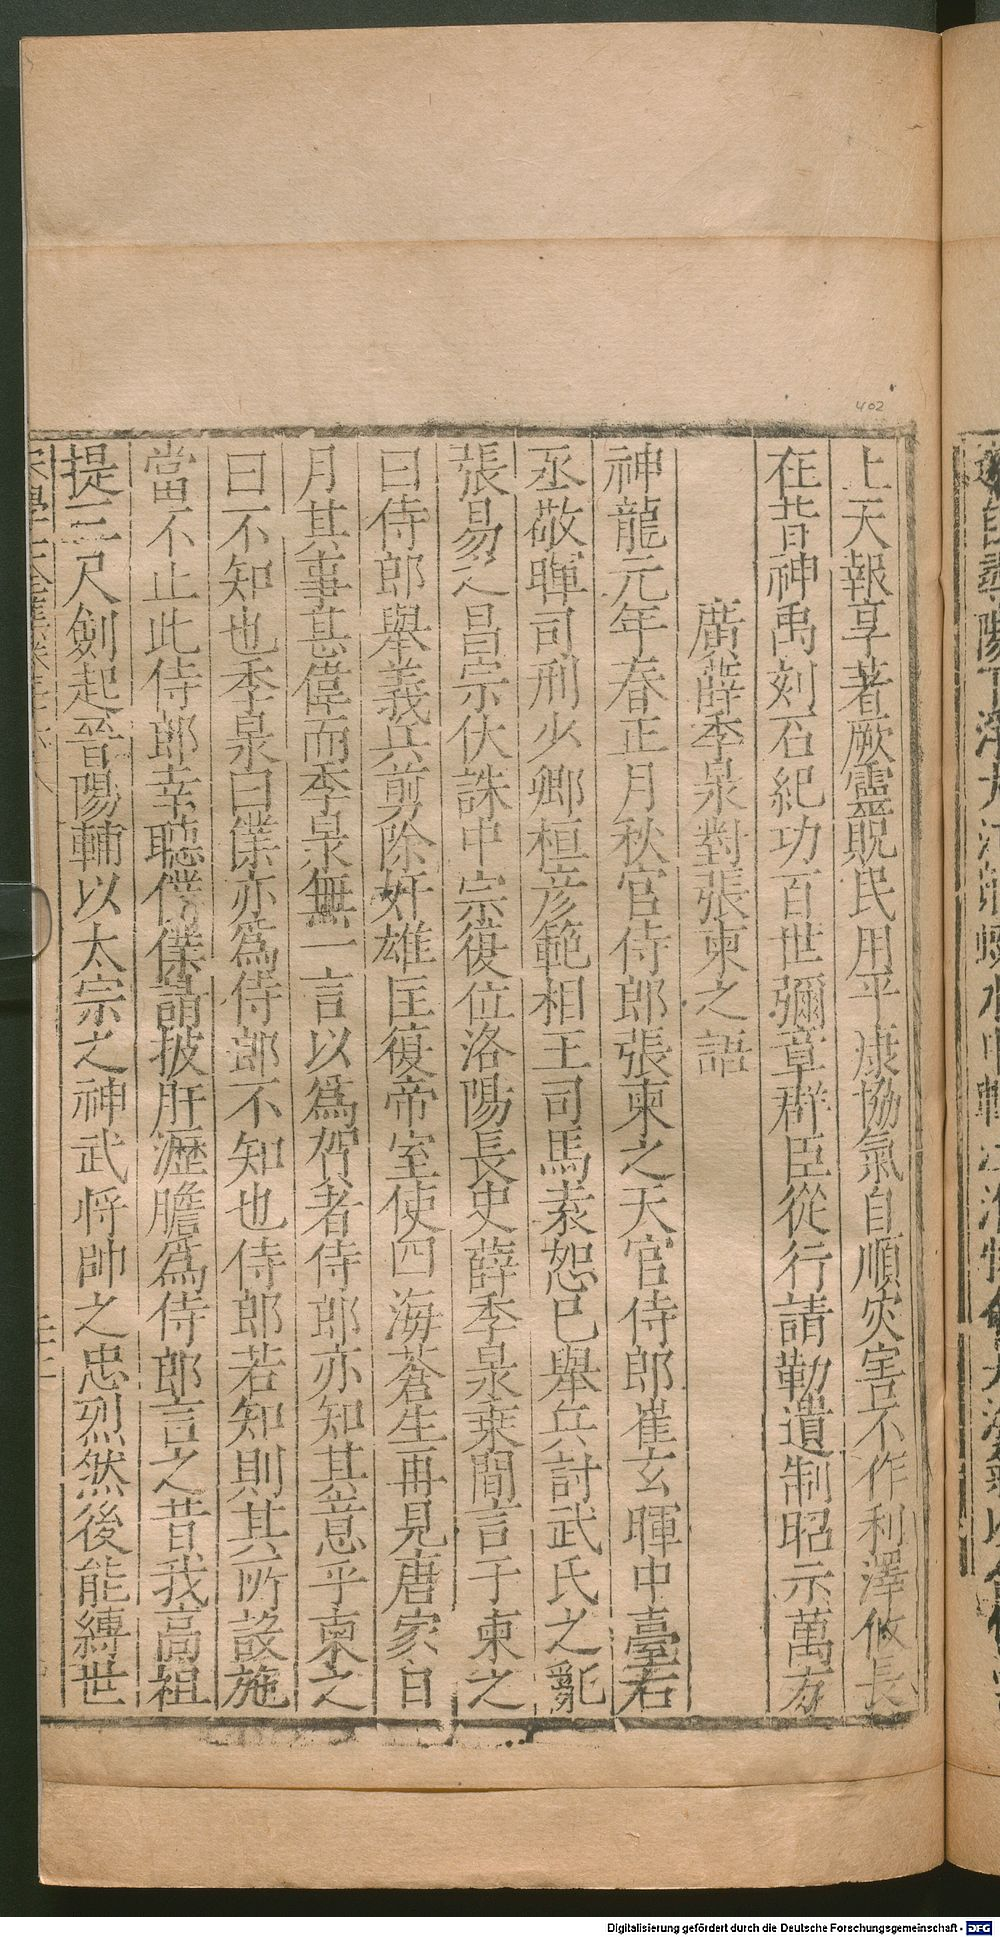 402
上天報享著厥靈貺民用平康協氣自順災害不作利澤攸長
在昔神禹刻石紀功百世彌章群臣從行請勒遺制昭示萬方
廣薛季泉對張柬之語
神龍元年春正月秋官侍郎張柬之天官侍郎崔玄暉中臺右
丞敬暉司刑少卿桓彦範相王司馬袤恕已舉兵討武氏之亂
張易之昌宗伏誅中宗復位洛陽長史薛季泉乘間言于柬之
曰侍郎舉義兵剪除奸雄匡復帝室使四海蒼生再見唐家日
月其事甚偉而季泉無一言以爲賀者侍郎亦知其意乎柬之
曰不知也季泉曰僕亦爲侍郎不知也侍郎若知則其所設施
當不止此侍郎幸聽僕僕請披肝瀝膽爲侍郎言之昔我高祖
提三尺劍起晉陽輔以太宗之神武将帥之忠烈然後能縛世
Digitalisierung gefördert durch die Deutsche Forschungsgemeinschaft - DFG